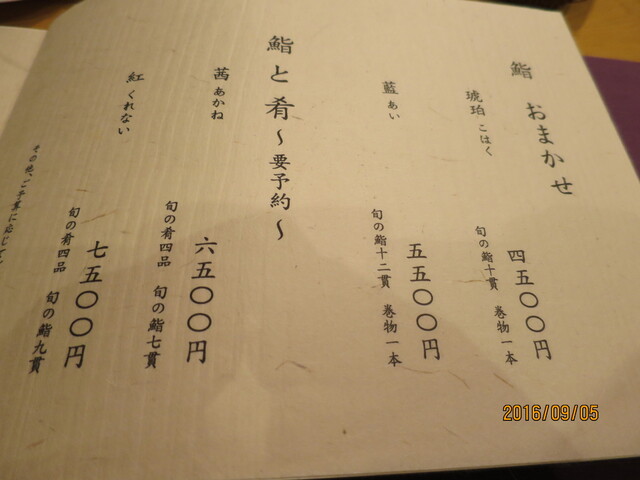 鮨 おまかせ
琥珀 こはく
四五〇〇円
旬の鮨十貫 巻物一本
藍 あい
五五〇〇円
旬の鮨十二貫 巻物一本
鮨と肴～要予約～
茜 あかね
六五〇〇円
旬の肴四品 旬の鮨七貫
紅 くれない
七五〇〇円
旬の肴四品 旬の鮨九貫
その他、ご予算に応じて
2016/09/05